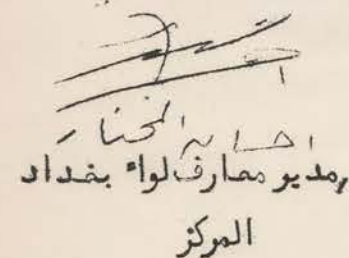 المختار
مدير معارف لواء بغداد
المركز